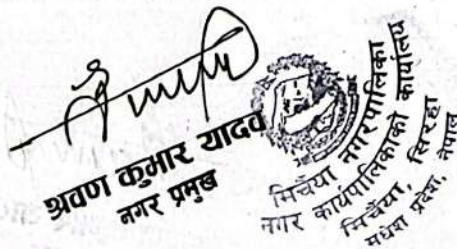 श्रवण कुमार यादव
नगर प्रमुख
मिर्चैया नगरपालिका
नगर कार्यपालिकाको कार्यालय
मिर्चैया, सिरहा
मधेश प्रदेश, नेपाल